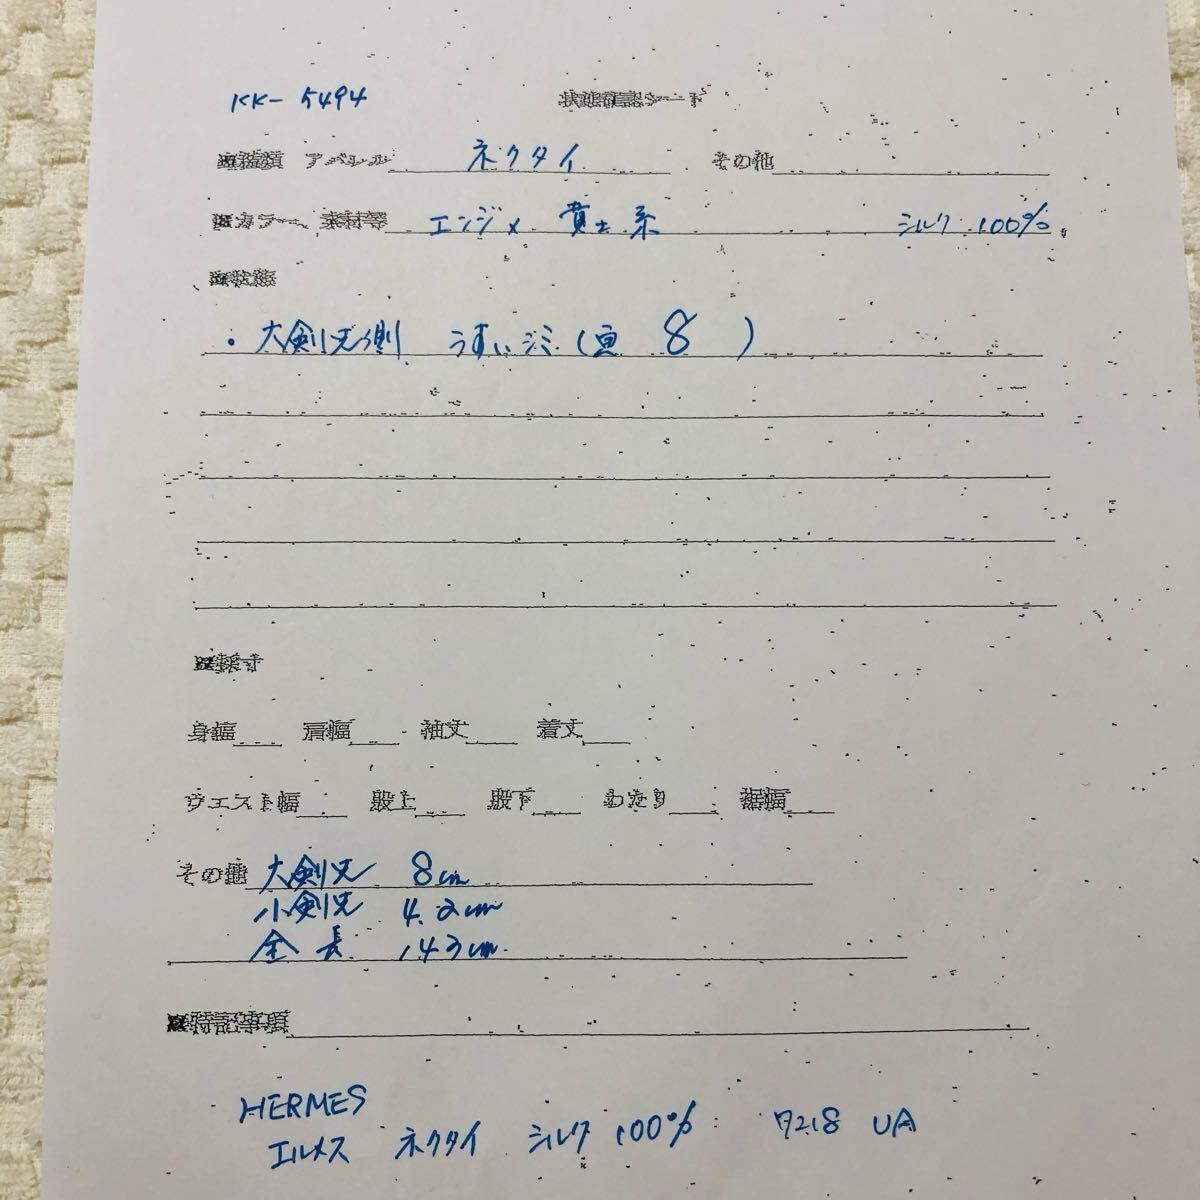 KK-5494 状態確認シート
■種類 アパレル ネクタイ その他
■カラー、素材等 エンジ× 黄土系 シルク 100%
■状態
・大剣 側 うすいシミ( 8 )
■採寸
身幅 肩幅 袖丈 着丈
ウエスト幅 股上 股下 わたり 裾幅
その他 大剣丈 8cm
小剣丈 4.2cm
全長 143cm
■特記事項
HERMES
エルメス ネクタイ シルク 100% 7218 UA